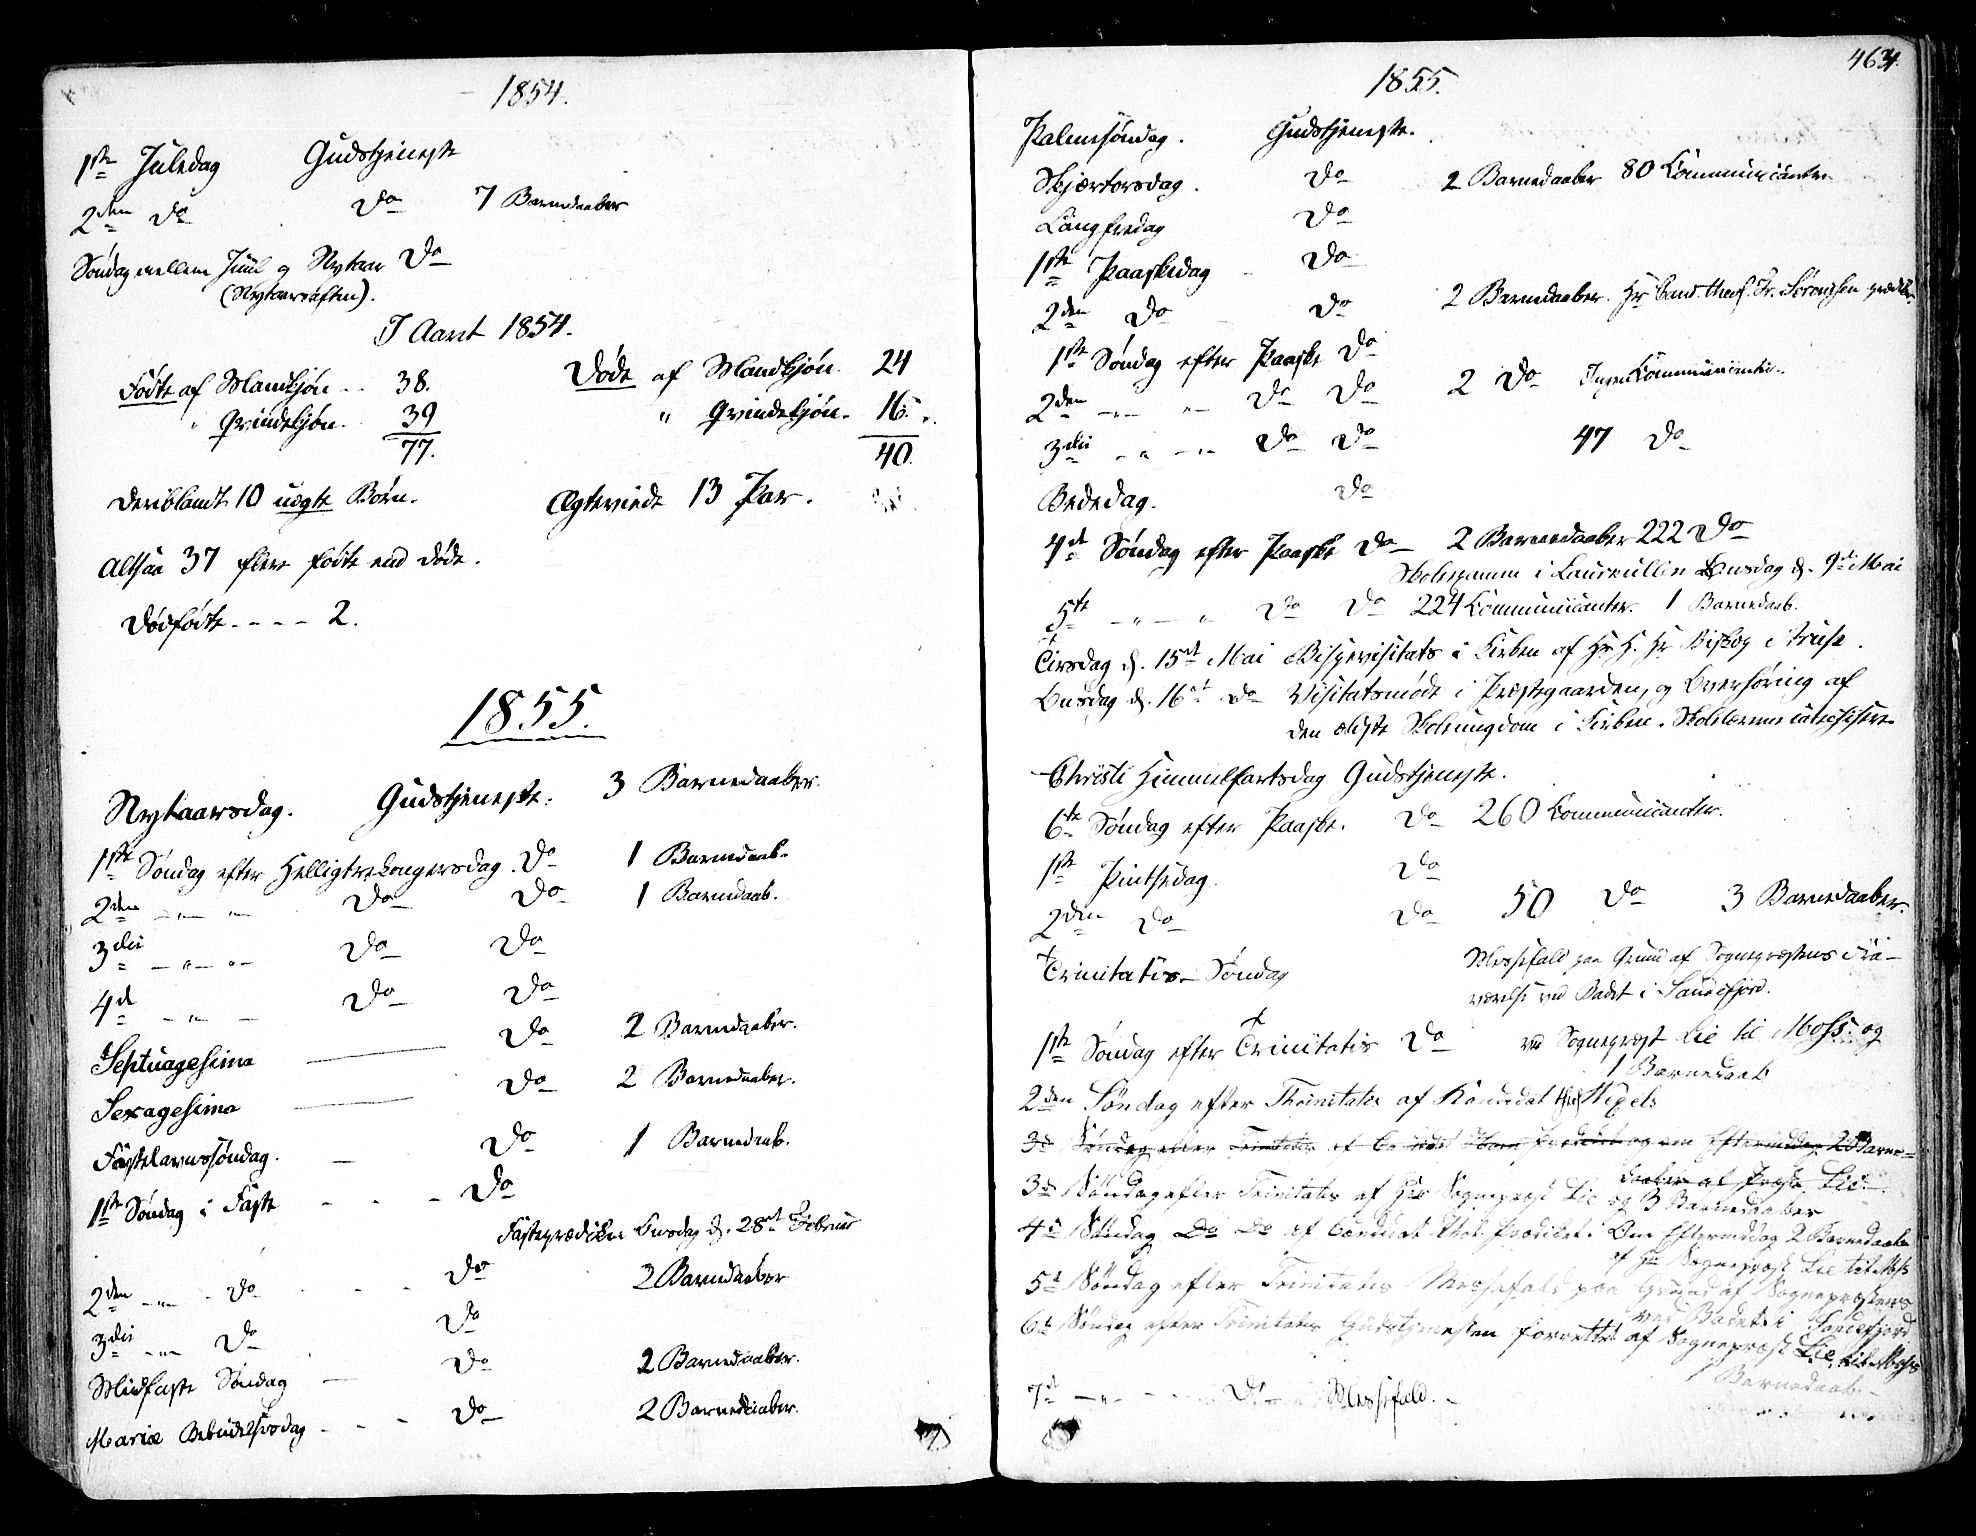 1854.
1ste Juledag Gudstjeneste
2den Do Do 7 Barnedaaber
Søndag mellem Juul og Nytaar Do
(Nytaarsaften).
I Aaret 1854.
Fødte af Mandkjøn - - 38. Døde af Mandkjøn. 24
" Qvindekjøn. 39 " Qvindekjøn. 16.
77. 40.
Deriblandt 10 uægte Børn. Ægteviede 13 Par.
Altsaa 37 flere fødte end døde.
Dødfødte - - - - 2.
1855.
Nytaarsdag. Gudstjeneste. 3 Barnedaaber.
1ste Søndag efter Helligtrekongersdag. Do 1 Barnedaab.
2den - " - " Do Do 1 Barnedaab.
3die - " - " - Do Do
4de - " - Do Do
Septuagesima Do 2 Barnedaaber.
Sexagesima Do 2 Barnedaaber.
Fastelavnssøndag. - Do 1 Barnedaab.
1ste Søndag i Faste - - - Do
Fasteprædiken Onsdag d. 28de Februar
2den - " - Do - - - Do 2 Barnedaaber
3die - " - Do Do
Midfaste Søndag - Do 2 Barnedaaber.
Mariæ Bebudelsesdag - - - Do 2 Barnedaaber.
1855. 464.
Palmesøndag. Gudstjeneste.
Skjærtorsdag. Do 2 Barnedaaber 80 Communicanter
Langfredag Do
1ste Paaskedag Do
2den Do Do 2 Barnedaaber. Hr Cand. theol. Fr. Sørensen
1ste Søndag efter Paaske Do
2den - " - " - Do Do 2 Do Ingen Communicanter.
3die - " - " - Do Do 47 Do
Bededag. Do
4de Søndag efter Paaske Do 2 Barnedaaber 222 Do
i Laurkullen Onsdag d. 9de Mai
5te - " - " Do Do 224 Communicanter. 1 Barnedaab.
Tirsdag d. 15de Mai Bispevisitats i Kirken af Hr H. Hr Biskop Arup.
Onsdag d. 16de Do Visitatsmøde i Præstegaarden, og Overhøring af
den ældste Skoleungdom i Kirken. Skolelærerne catechiserte
Christi Himmelfartsdag Gudstjeneste.
6te Søndag efter Paaske. Do 260 Communicanter.
1ste Pintsedag. Do
2den Do Do 50 Do 3 Barnedaaber.
Trinitatis-Søndag Messefald paa Grund af Sognepræstens Fra-
værelse ved Badet i Sandefjord.
1ste Søndag efter Trinitatis Do ved Sognepræst Lie til Moss og
1 Barnedaab
2den Søndag efter Trinitatis af Kandidat theol
3de Søndag efter Trinitatis af prædiket og om Eftermiddag 2 Barne-
daaber af Præst Lie.
3de Søndag efter Trinitatis af Hr Sognepræst Lie og 3 Barnedaaber
4de Søndag Do Do af Candidat Prædiket. Om Eftermiddag 2 Barnedaaber
af Hr Sognepræst Lie til Moss
5te Søndag efter Trinitatis Messefald paa Grund af Sognepræstens
ved Badet i Sandefjord
6te Søndag efter Trinitatis Gudstjenesten forrettet af Sognepræst Lie til Moss
1 Barnedaab -
7de - " - - - Do - Messefald. -